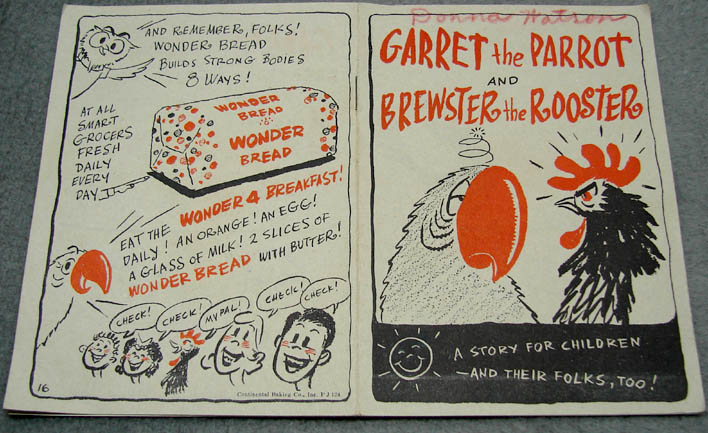 AND REMEMBER, FOLKS!
WONDER BREAD
BUILDS STRONG BODIES
8 WAYS!
AT ALL
SMART
GROCERS
FRESH
DAILY
EVERY
DAY
WONDER
BREAD
WONDER
BREAD
EAT THE WONDER 4 BREAKFAST!
DAILY! AN ORANGE! AN EGG!
A GLASS OF MILK! 2 SLICES OF
WONDER BREAD WITH BUTTER!
CHECK!
CHECK!
MY PAL!
CHECK!
CHECK!
16
Continental Baking Co., Inc. P J 124
Donna Watson
GARRET the PARROT
AND
BREWSTER the ROOSTER
A STORY FOR CHILDREN
—AND THEIR FOLKS, TOO!